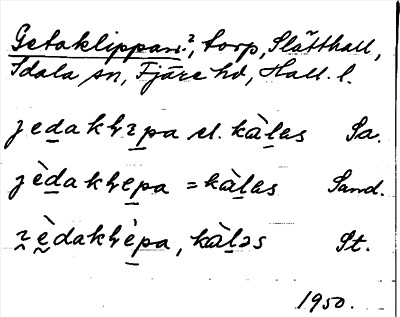 Getaklippan?, torp, Slätthall,
Idala sn, Fjäre hd, Hall. l.
jedakhɿpa el. kàlas Sa.
jèdakhepa = kàlas Sand.
ɿèdakhèpa, kàləs St.
1950.